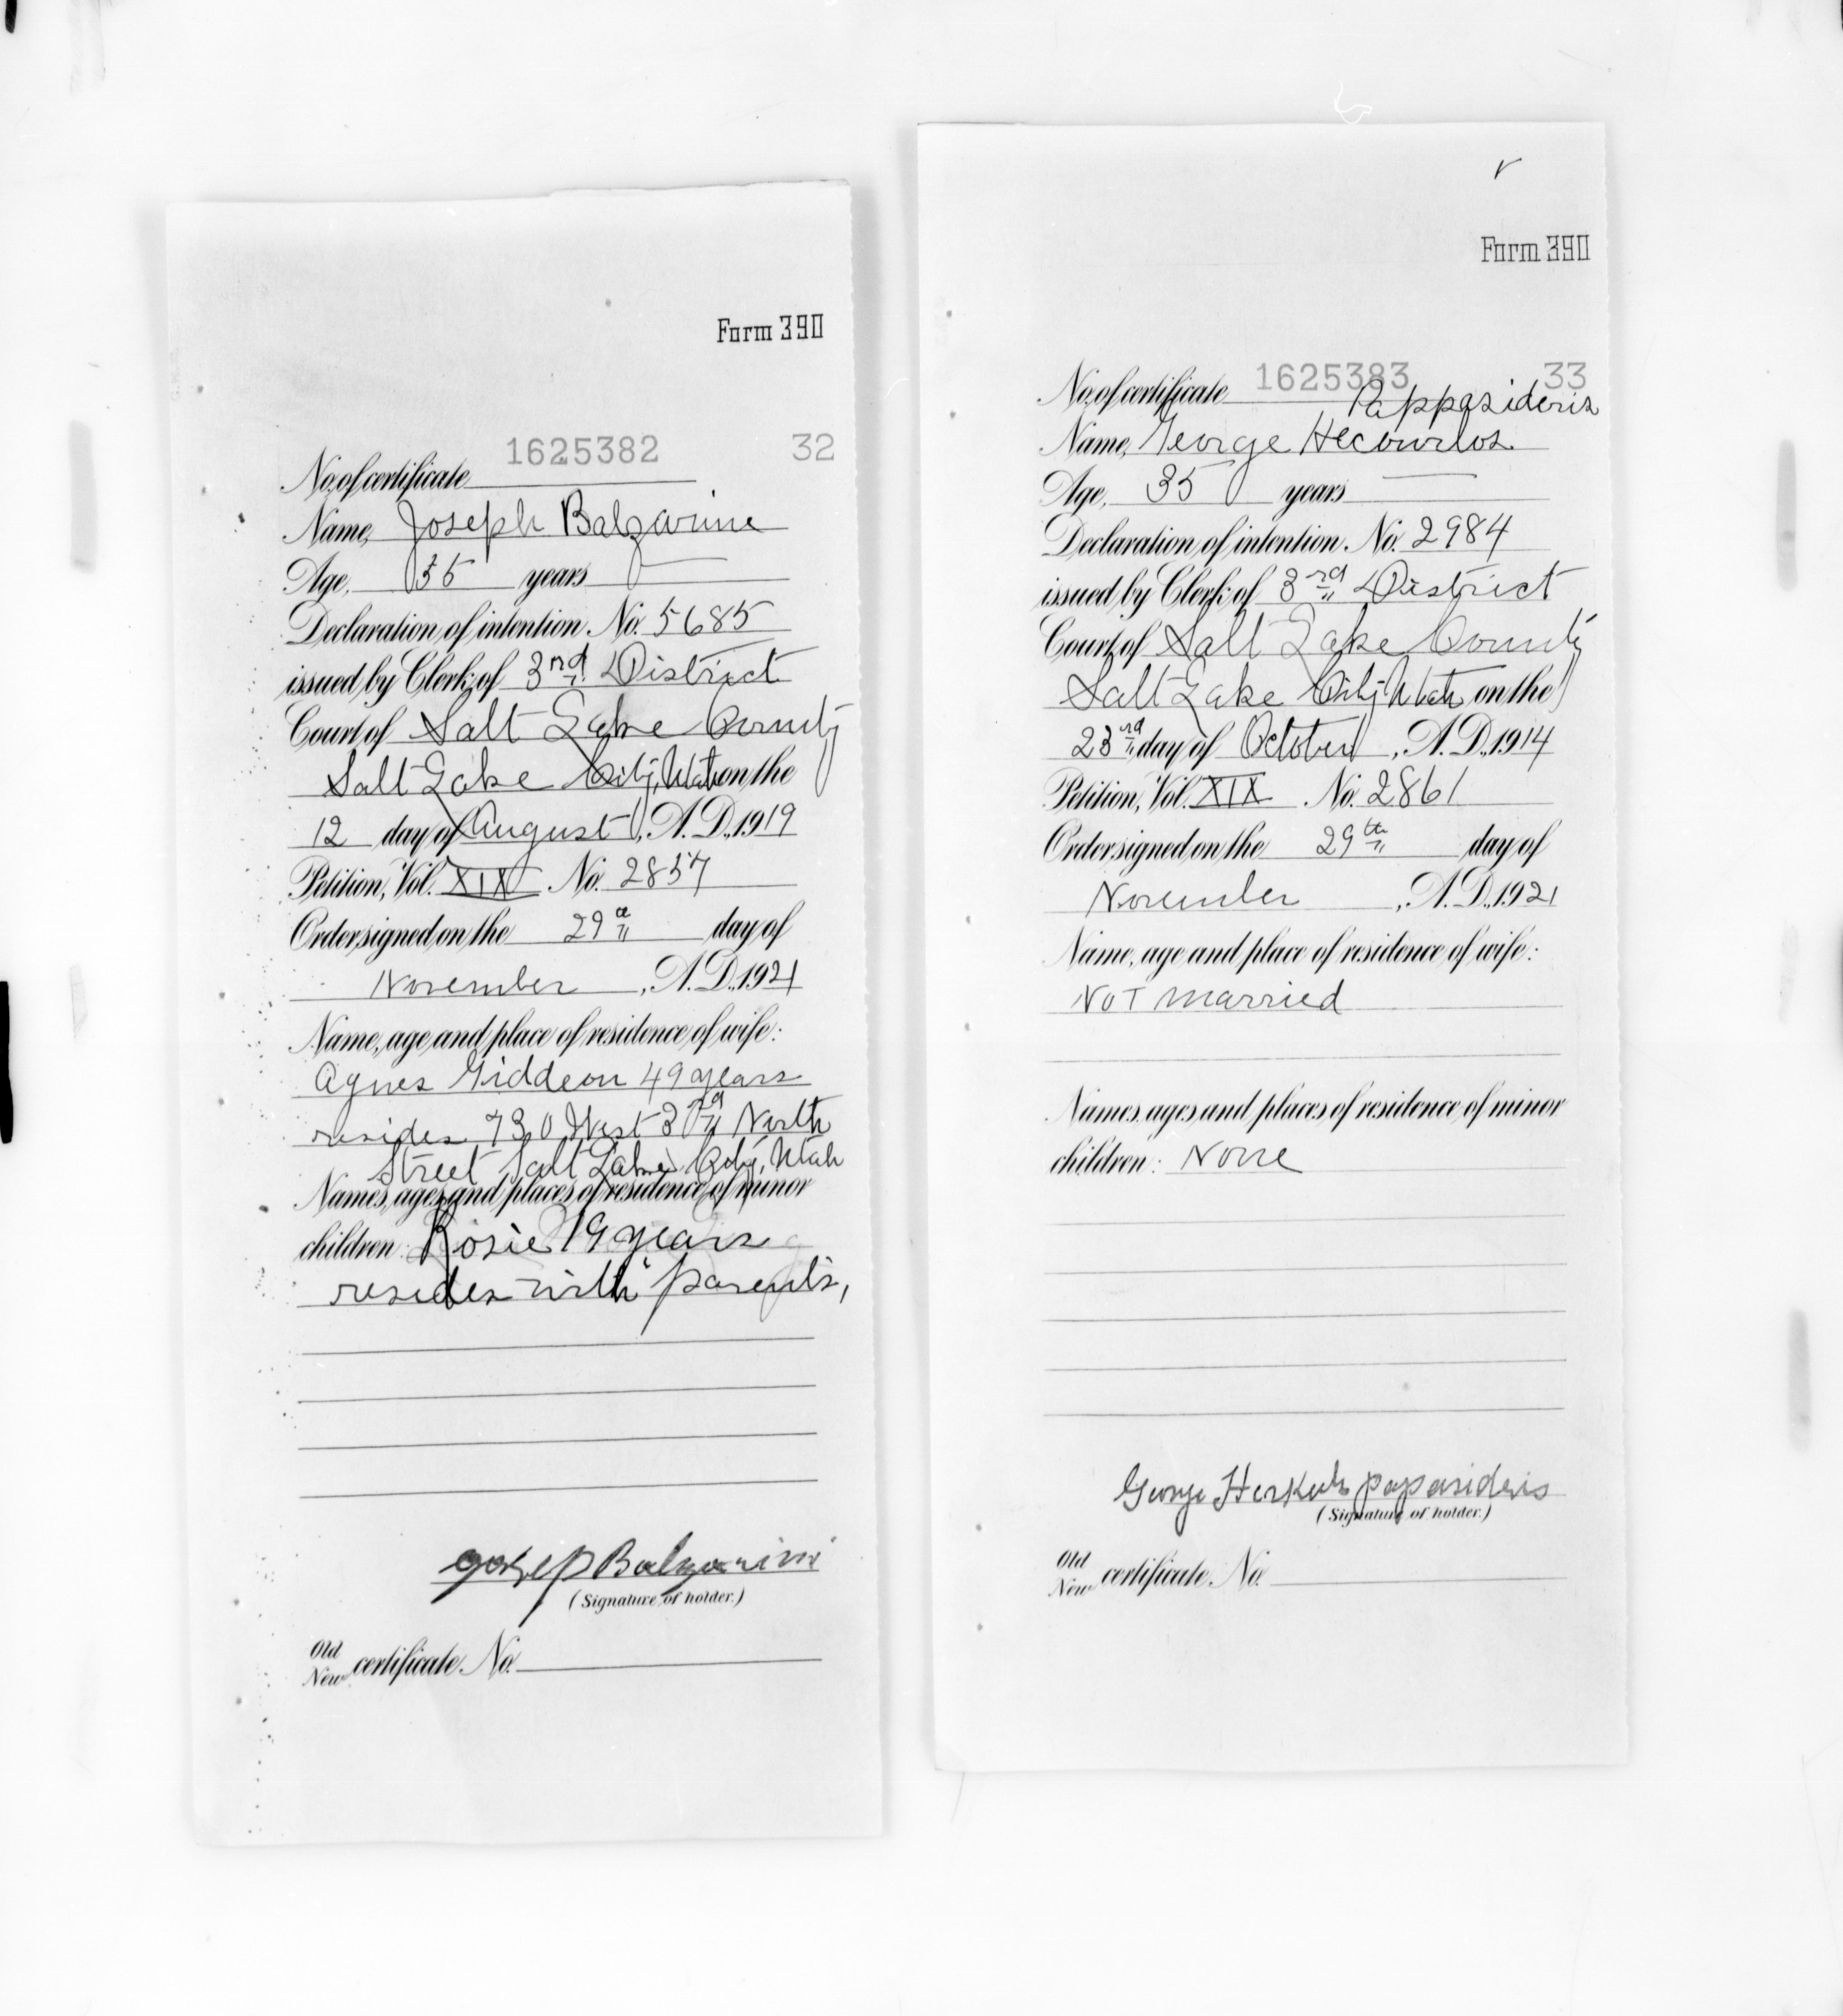 Form 390
1625382 32
No. of certificate
Name, Joseph Balzarine
Age, 36 years
Declaration of intention. No. 5685
issued by Clerk of 3rd District
Court of Salt Lake County
Salt Lake City, Utah on the
12 day of August, A.D., 1919
Petition, Vol. XIX No. 2857
Order signed on the 29th day of
November, A.D., 1921
Name, age and place of residence of wife:
Agnes Giddeon 49 years
resides 730 West 3rd North
Street Salt Lake City, Utah
Names, ages and places of residence of minor
children: Rosie 19 years
resides with parents,
Balzarini
(Signature of holder.)
Old
New certificate. No.
✓
Form 390
No. of certificate 1625383 33
Pappasideris
Name, George
Age, 35 years
Declaration of intention. No. 2984
issued by Clerk of 3rd District
Court of Salt Lake County
Salt Lake City, Utah on the
23rd day of October, A.D., 1914
Petition, Vol. XIX No. 2861
Order signed on the 29th day of
November, A.D., 1921
Name, age and place of residence of wife:
NOT married
Names, ages and places of residence of minor
children: None
George papasideris
(Signature of holder.)
Old
New certificate. No.